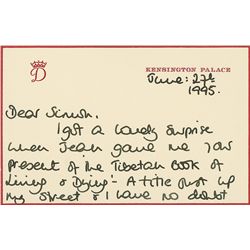 D
KENSINGTON PALACE
June: 27th
1995.
Dear
I got a lovely surprise
when Jean gave me your
present of the Tibetan Book of
Living & Dying - A title just up
my street & I have no doubt